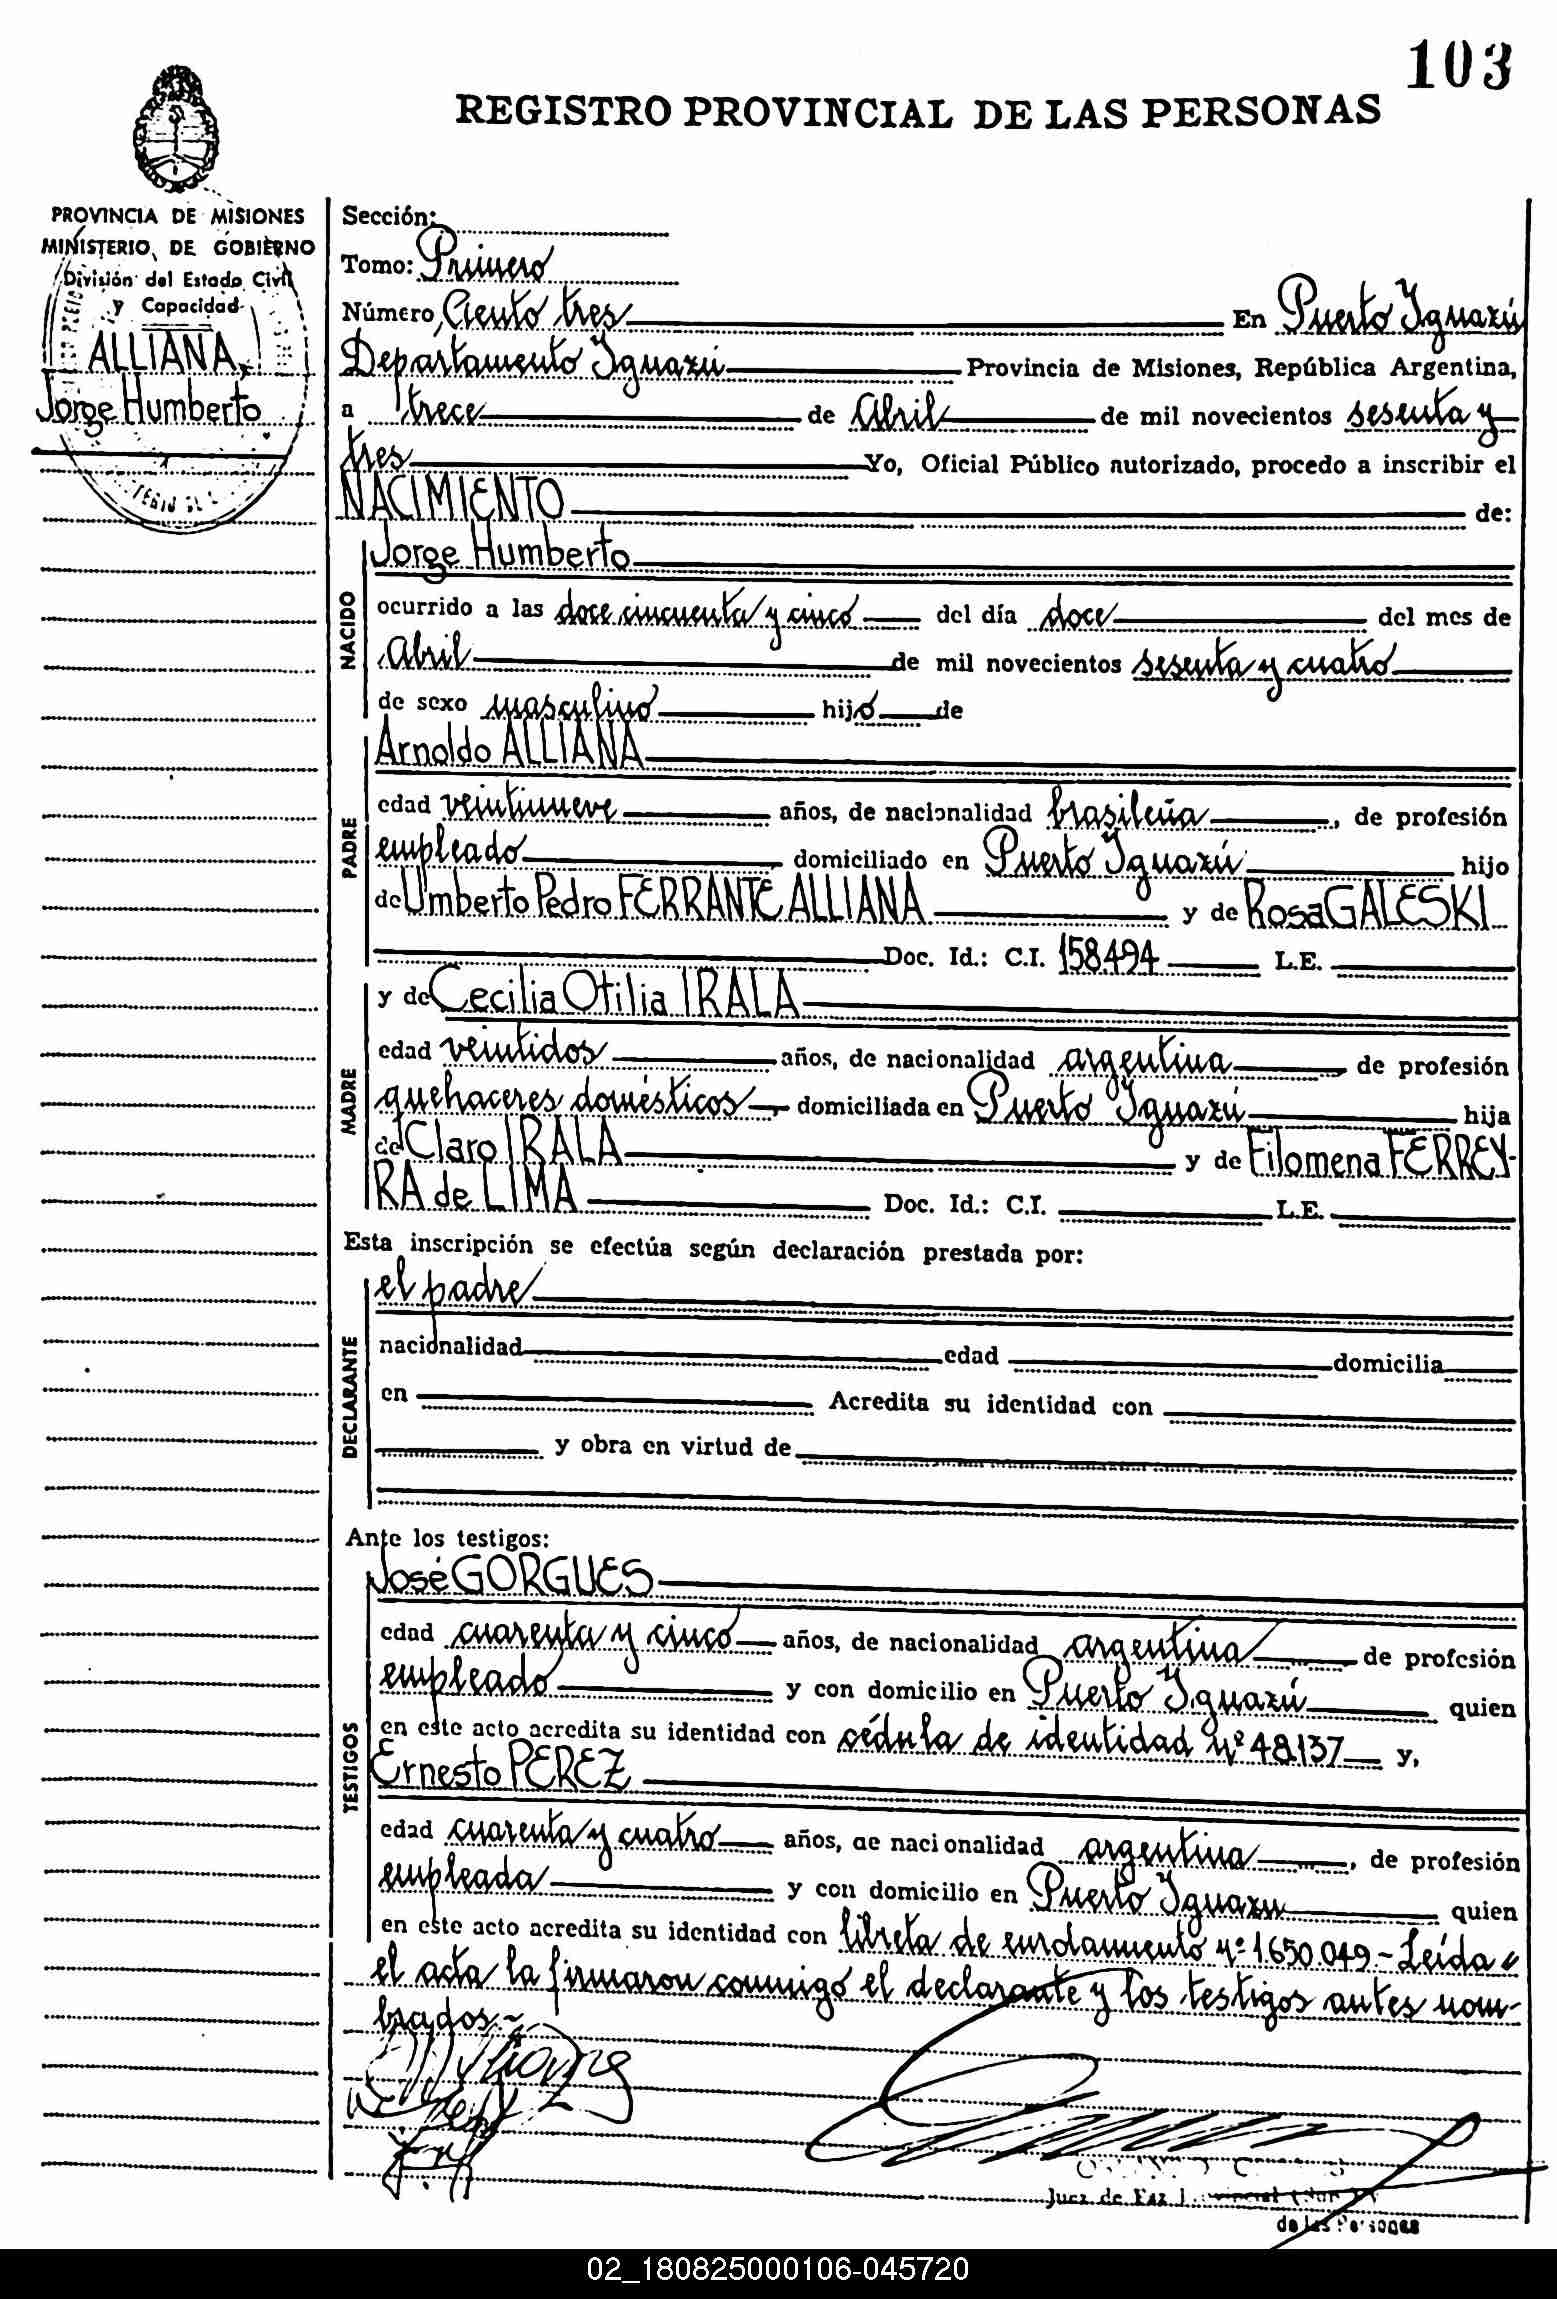 103
REGISTRO PROVINCIAL DE LAS PERSONAS
PROVINCIA DE MISIONES
MINISTERIO DE GOBIERNO
División del Estado Civil
y Capacidad
ALLIANA,
Jorge Humberto
Sección:
Tomo: Primero
Número Ciento tres En Puerto Iguazú
Departamento Iguazú Provincia de Misiones, República Argentina,
a trece de Abril de mil novecientos sesenta y
tres Yo, Oficial Público autorizado, procedo a inscribir el
NACIMIENTO de:
NACIDO
Jorge Humberto
ocurrido a las doce cincuenta y cinco del día doce del mes de
Abril de mil novecientos sesenta y cuatro
de sexo masculino hijo de
PADRE
Arnoldo ALLIANA
edad veintinueve años, de nacionalidad brasileña, de profesión
empleado, domiciliado en Puerto Iguazú hijo
de Umberto Pedro FERRANTE ALLIANA y de Rosa GALESKI
Doc. Id.: C.I. 158.494 L.E.
MADRE
y de Cecilia Otilia IRALA
edad veintidos años, de nacionalidad argentina, de profesión
quehaceres domésticos, domiciliada en Puerto Iguazú hija
de Claro IRALA y de Filomena FERREY-
RA de LIMA Doc. Id.: C.I. L.E.
Esta inscripción se efectúa según declaración prestada por:
DECLARANTE
el padre
nacionalidad edad domicilia
en Acredita su identidad con
y obra en virtud de
Ante los testigos:
TESTIGOS
José GORGUES
edad cuarenta y cinco años, de nacionalidad argentina, de profesión
empleado y con domicilio en Puerto Iguazú quien
en este acto acredita su identidad con cédula de identidad Nº 48.137 y,
Ernesto PEREZ
edad cuarenta y cuatro años, de nacionalidad argentina, de profesión
empleada y con domicilio en Puerto Iguazu quien
en este acto acredita su identidad con libreta de enrolamiento nº 1.650.049 - Leída
el acta la firmaron conmigo el declarante y los testigos antes nom-
brados.-
Juez de Paz
de las Personas
02_180825000106-045720